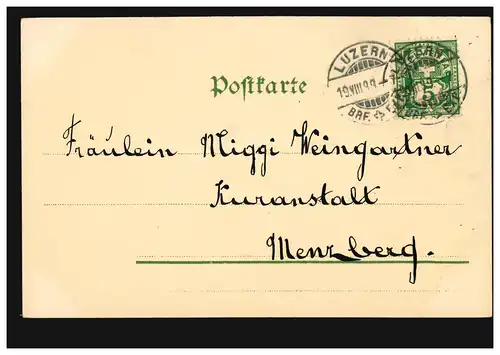 LUZERN
19.VIII.99
Postkarte
5
Fräulein Miggi Weingartner
Kuranstalt
Menzberg.